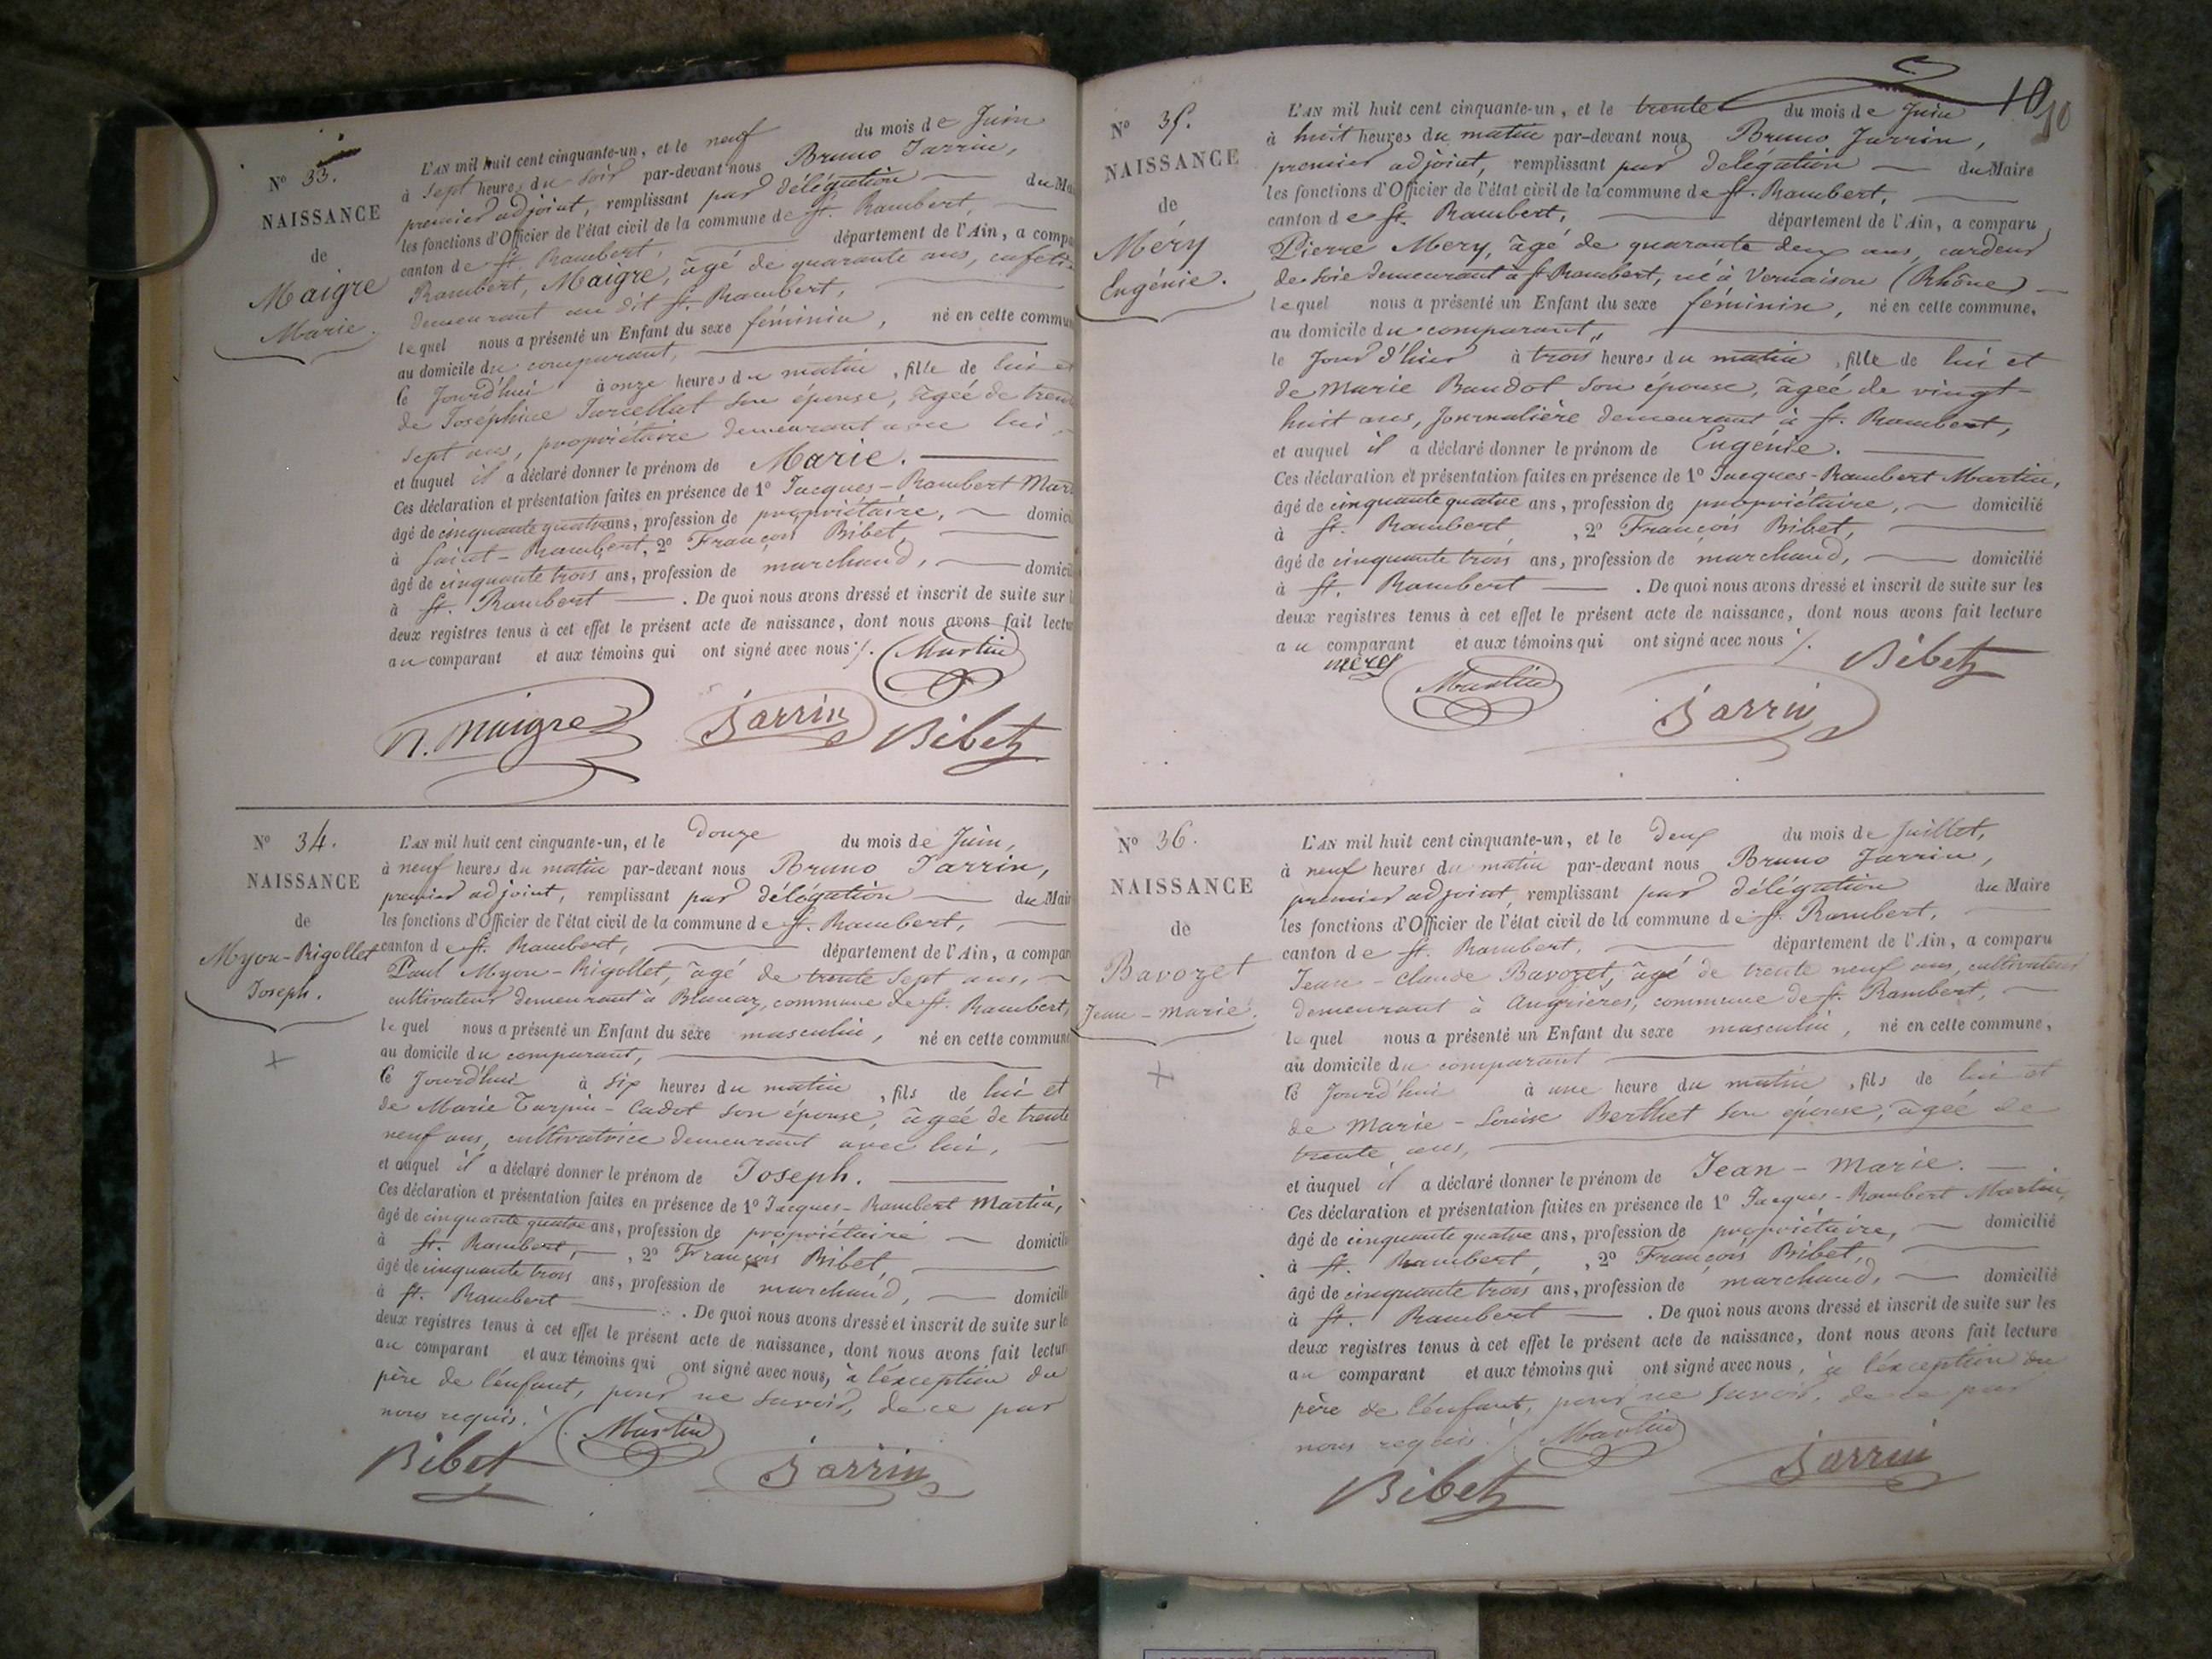 N° 33.
NAISSANCE
de
Maigre
Marie.
L'AN mil huit cent cinquante-un, et le neuf du mois de Juin
à sept heures du soir par-devant nous Bruno Jarrin,
premier adjoint, remplissant par délégation du Mai
les fonctions d'Officier de l'état civil de la commune de St. Rambert,
canton de St. Rambert, département de l'Ain, a compa
Rambert, Maigre, âgé de quarante ans, cafeti
demeurant au dit St. Rambert,
lequel nous a présenté un Enfant du sexe féminin, né en cette commun
au domicile du comparant,
ce Jourd'hui à onze heures du matin, fille de lui et
de Joséphine Jurcellat son épouse, âgée de trente
sept ans, propriétaire demeurant avec lui
et auquel il a déclaré donner le prénom de Marie.
Ces déclaration et présentation faites en présence de 1° Jacques-Rambert Mart
âgé de cinquante quatre ans, profession de propriétaire, domici
à Saint-Rambert, 2° François Bibet,
âgé de cinquante trois ans, profession de marchand, domicil
à St. Rambert. De quoi nous avons dressé et inscrit de suite sur l
deux registres tenus à cet effet le présent acte de naissance, dont nous avons fait lectu
au comparant et aux témoins qui ont signé avec nous ./. Martin
R. Maigre Jarrin Bibet
N° 34.
NAISSANCE
de
Myon-Rigollet
Joseph.
+
L'AN mil huit cent cinquante-un, et le Douze du mois de Juin,
à neuf heures du matin par-devant nous Bruno Jarrin,
premier adjoint, remplissant par délégation du Mair
les fonctions d'Officier de l'état civil de la commune de St. Rambert,
canton de St. Rambert, département de l'Ain, a compar
Paul Myon-Rigollet, âgé de trente sept ans,
cultivateur demeurant à Blanaz, commune de St. Rambert,
lequel nous a présenté un Enfant du sexe masculin, né en cette commune
au domicile du comparant,
ce Jourd'hui à six heures du matin, fils de lui et
de Marie Turpin-Cadot son épouse, âgée de trente
neuf ans, cultivatrice demeurant avec lui,
et auquel il a déclaré donner le prénom de Joseph.
Ces déclaration et présentation faites en présence de 1° Jacques-Rambert Martin,
âgé de cinquante quatre ans, profession de propriétaire domicili
à St. Rambert, 2° François Bibet,
âgé de cinquante trois ans, profession de marchand, domicili
à St. Rambert. De quoi nous avons dressé et inscrit de suite sur le
deux registres tenus à cet effet le présent acte de naissance, dont nous avons fait lectur
au comparant et aux témoins qui ont signé avec nous, à l'exception du
père de l'enfant, pour ne savoir, de ce par
nous requis ./. Martin
Bibet Jarrin
10
10
N° 35.
NAISSANCE
de
Méry
Eugénie.
L'AN mil huit cent cinquante-un, et le trente du mois de Juin
à huit heures du matin par-devant nous Bruno Jarrin,
premier adjoint, remplissant par délégation du Maire
les fonctions d'Officier de l'état civil de la commune de St. Rambert,
canton de St. Rambert, département de l'Ain, a comparu
Pierre Mery, âgé de quarante deux ans, cardeur
de soie demeurant à St Rambert, né à Vernaison (Rhône)
lequel nous a présenté un Enfant du sexe féminin, né en cette commune,
au domicile du comparant,
le Jour d'hier à trois heures du matin, fille de lui et
de Marie Baudot son épouse, âgée de vingt-
huit ans, Journalière demeurant à St. Rambert,
et auquel il a déclaré donner le prénom de Eugénie.
Ces déclaration et présentation faites en présence de 1° Jacques-Rambert Martin,
âgé de cinquante quatre ans, profession de propriétaire, domicilié
à St. Rambert, 2° François Bibet,
âgé de cinquante trois ans, profession de marchand, domicilié
à St. Rambert. De quoi nous avons dressé et inscrit de suite sur les
deux registres tenus à cet effet le présent acte de naissance, dont nous avons fait lecture
au comparant et aux témoins qui ont signé avec nous ./.
Martin Jarrin Bibet
N° 36.
NAISSANCE
de
Bavozet
Jean-Marie.
+
L'AN mil huit cent cinquante-un, et le Deux du mois de Juillet,
à neuf heures du matin par-devant nous Bruno Jarrin,
premier adjoint, remplissant par délégation du Maire
les fonctions d'Officier de l'état civil de la commune de St. Rambert,
canton de St. Rambert, département de l'Ain, a comparu
Jean-Claude Bavozet, âgé de trente neuf ans, cultivateur
demeurant à Angrières, commune de St. Rambert,
lequel nous a présenté un Enfant du sexe masculin, né en cette commune,
au domicile du comparant
ce Jourd'hui à une heure du matin, fils de lui et
de Marie-Louise Berthet son épouse, âgée de
trente ans,
et auquel il a déclaré donner le prénom de Jean-Marie.
Ces déclaration et présentation faites en présence de 1° Jacques-Rambert Martin,
âgé de cinquante quatre ans, profession de propriétaire, domicilié
à St. Rambert, 2° François Bibet,
âgé de cinquante trois ans, profession de marchand, domicilié
à St. Rambert. De quoi nous avons dressé et inscrit de suite sur les
deux registres tenus à cet effet le présent acte de naissance, dont nous avons fait lecture
au comparant et aux témoins qui ont signé avec nous, à l'exception du
père de l'enfant, pour ne savoir, de ce par
nous requis ./. Martin
Bibet Jarrin